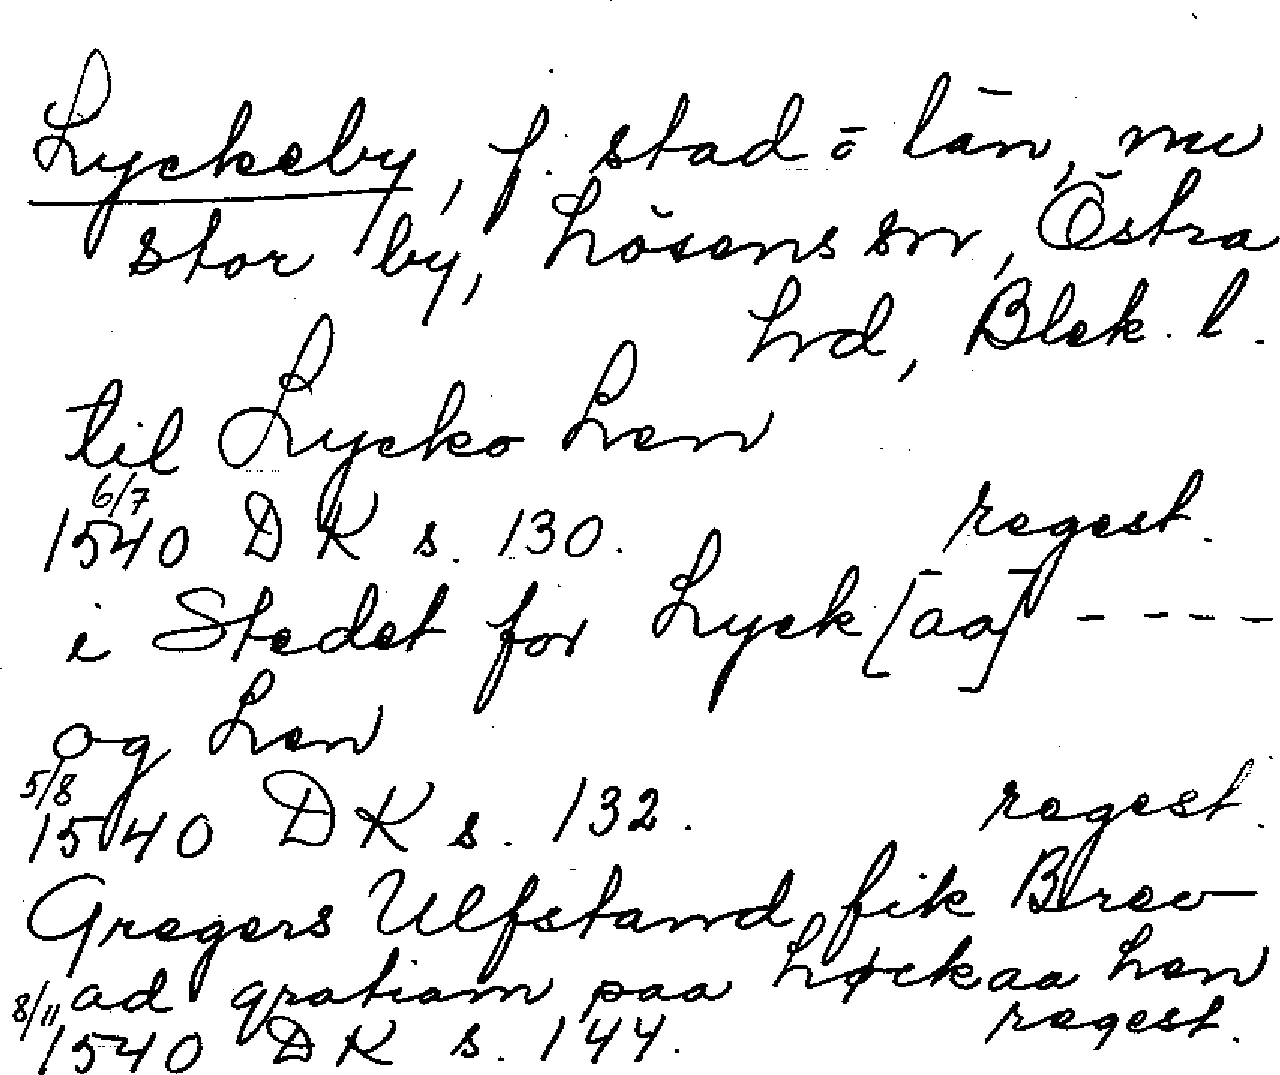 Lyckeby, f. stad o län, nu
stor by, Lösens sn, Östra
hrd, Blek. l.
til Lycko Len
6/7
1540 DK s. 130. regest.
i Stedet for Lyck[aa] ----
og Len
5/8
1540 DK s. 132. regest.
Gregers Ulfstand fik Brev
ad gratiam paa Løckaa Len
8/11 1540 DK s. 144. regest.